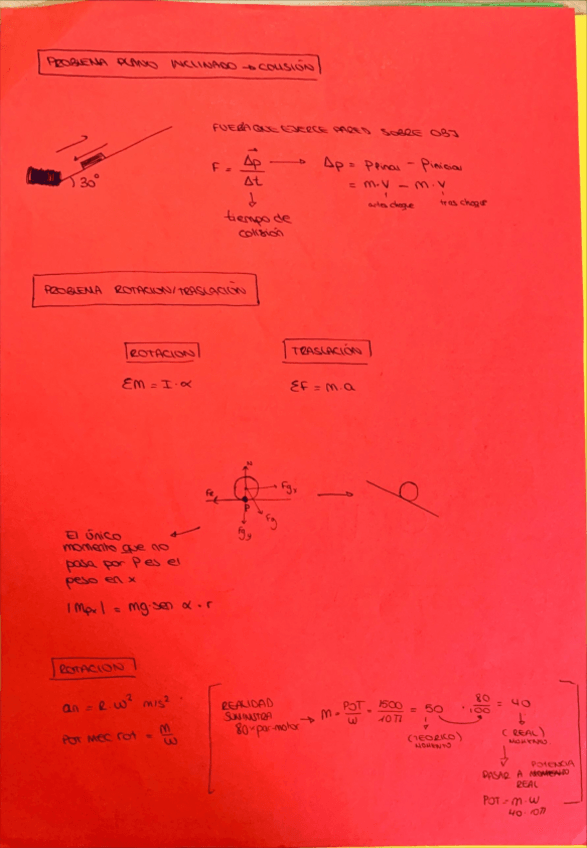 PROBLEMA PLANO INCLINADO → COLISIÓN
FUERZA QUE EJERCE PARED SOBRE OBJ
30°
F = Δp / Δt → Δp = pfinal - pinicial
= m·v - m·v
antes choque tras choque
tiempo de
colisión
PROBLEMA ROTACION/TRASLACIÓN
ROTACION
TRASLACIÓN
ΣM = I·α
ΣF = m·a
N
Fr
Fgx
P
Fg
Fgy
El único
momento que no
pasa por P es el
peso en x
|Mpx| = mg·sen α·r
ROTACION
an = R·ω² m/s²
POT MEC ROT = M/ω
REALIDAD
SUMINISTRA
80% par motor → M = POT/ω = 1500/10π = 50 · 80/100 = 40
(TEORICO)
MOMENTO
(REAL)
MOMENTO
PASAR A POTENCIA
REAL
POT = M·ω
40·10π